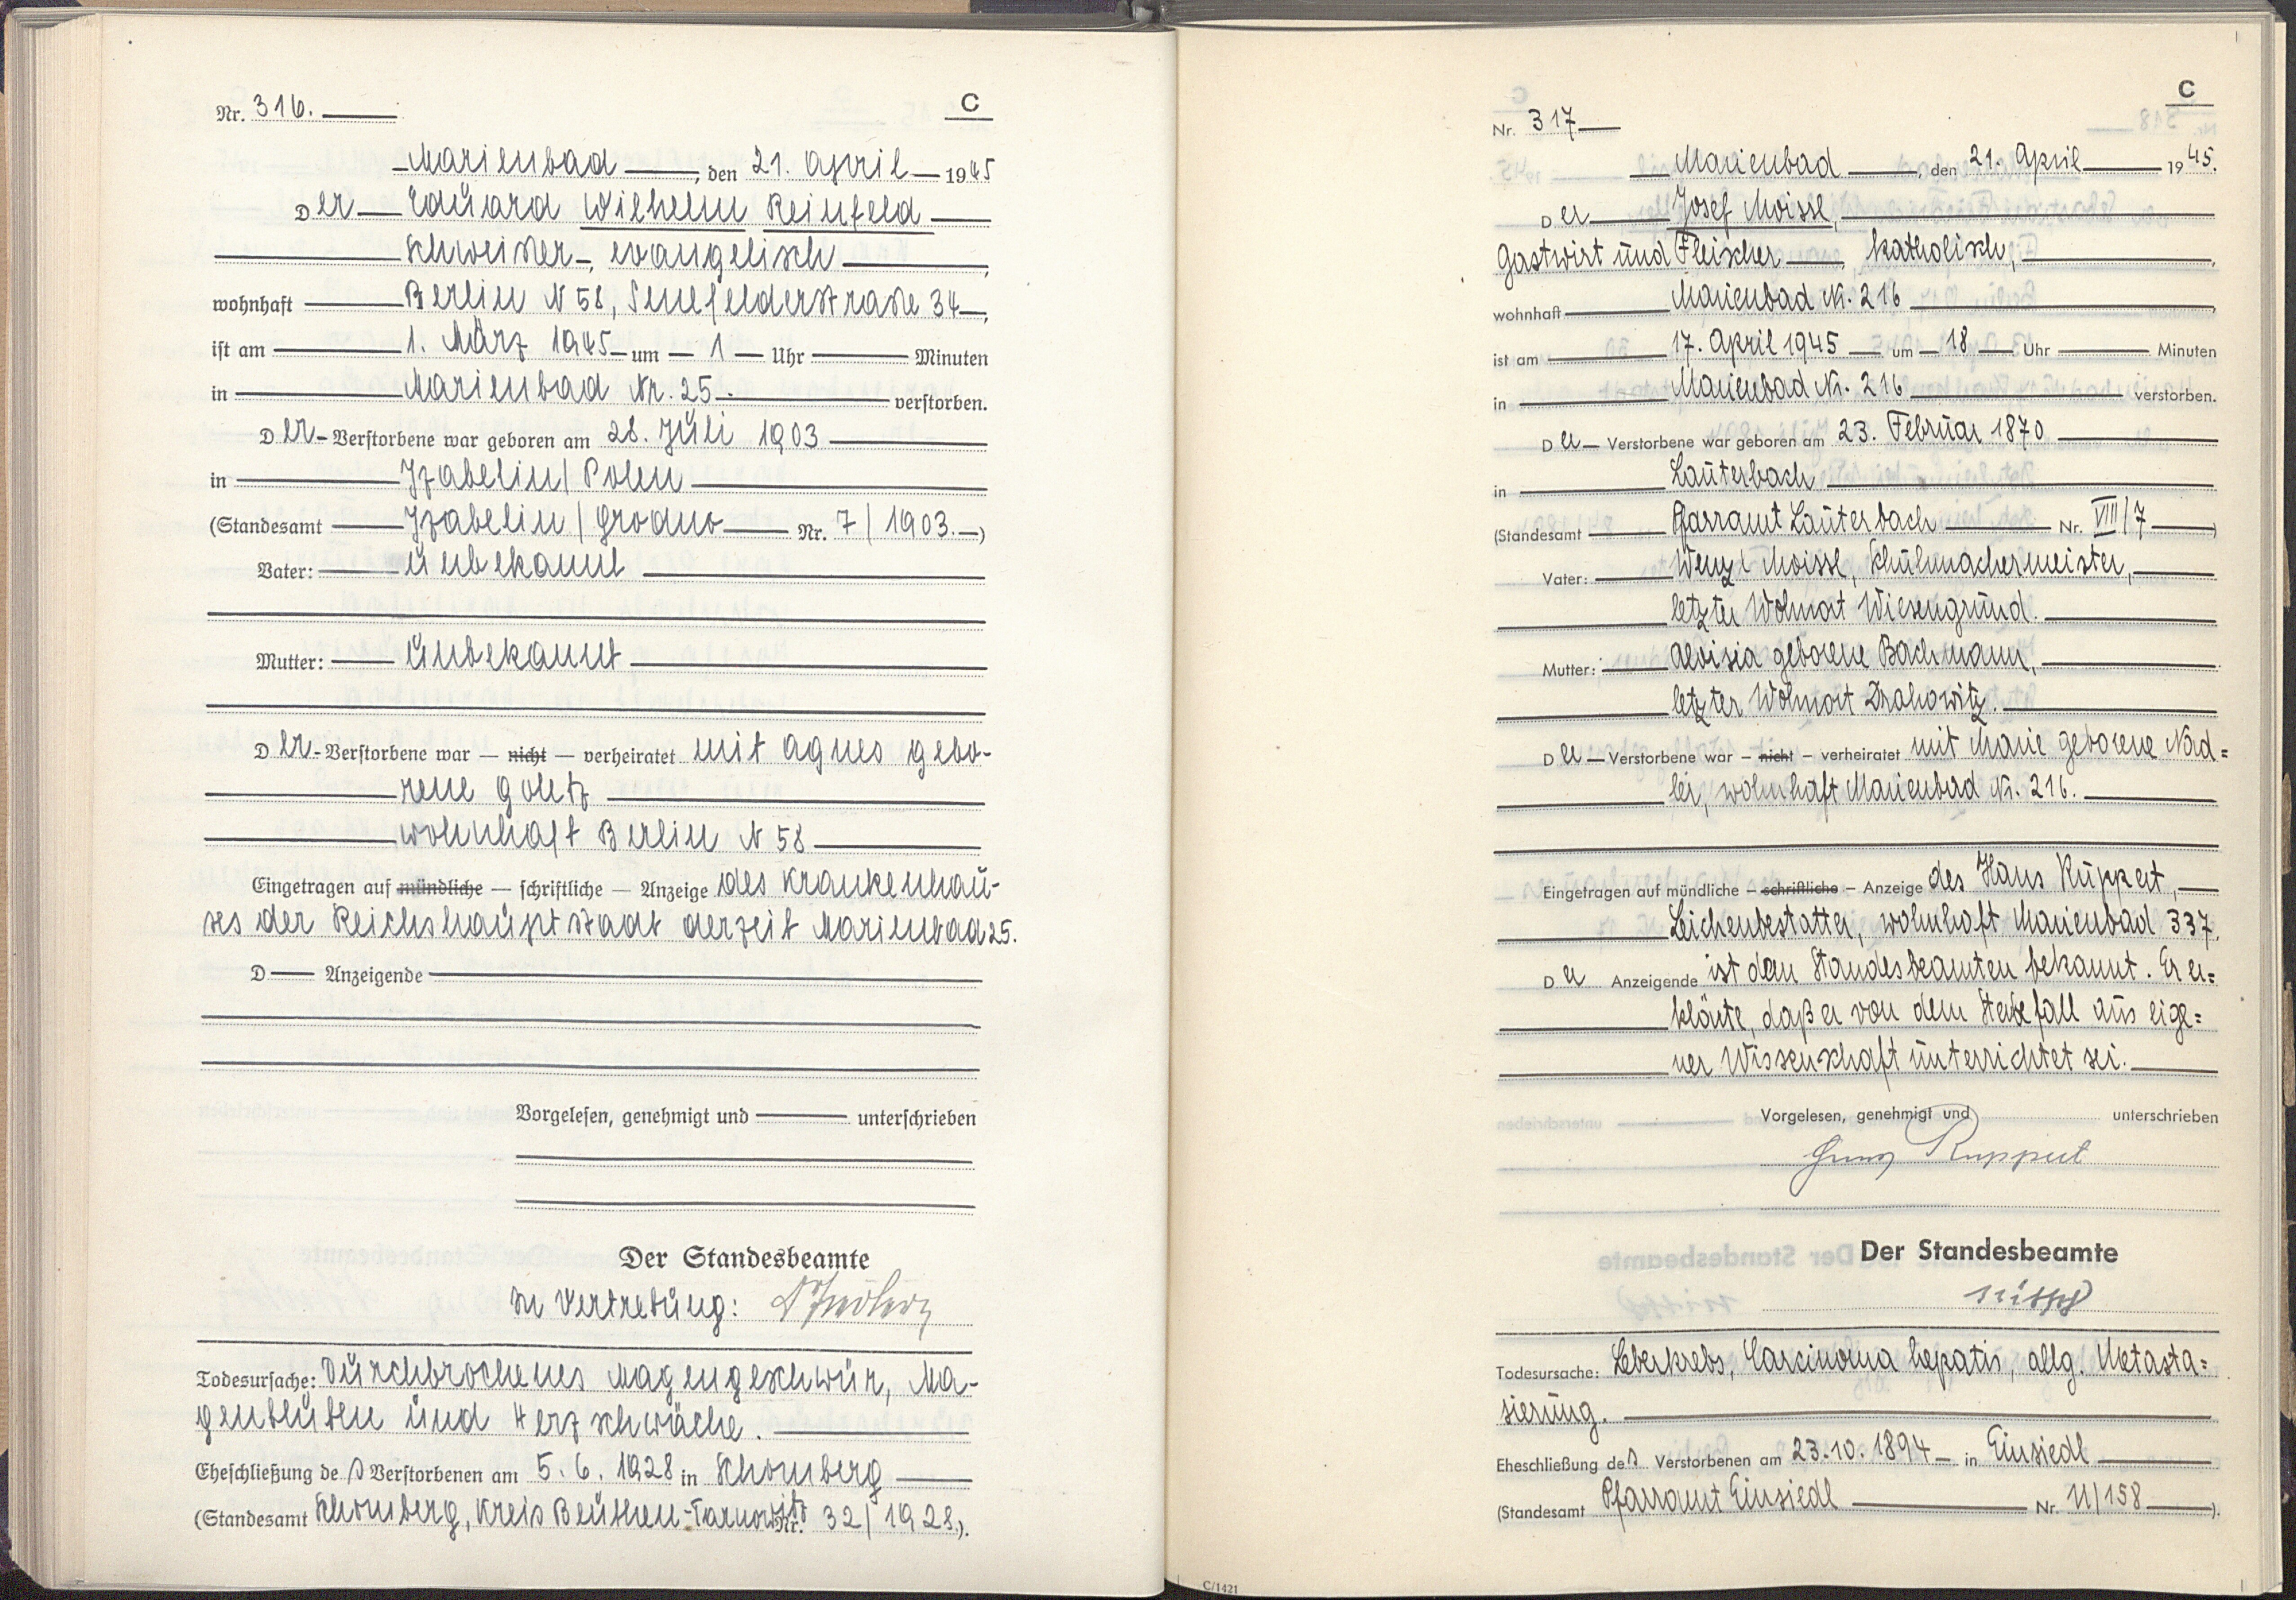 Nr. 316.
C
Marienbad, den 21. April 1945
Der Eduard Wilhelm Reinfeld
Schweißer, evangelisch,
wohnhaft Berlin N 58, Senefelderstraße 34,
ist am 1. März 1945 um 1 Uhr Minuten
in Marienbad Nr. 25. verstorben.
Der Verstorbene war geboren am 28. Juli 1903
in Izabelin/Polen
(Standesamt Izabelin/Grodno Nr. 7/1903.)
Vater: unbekannt
Mutter: unbekannt
Der Verstorbene war — nicht — verheiratet mit Agnes gebo-
rene Goletz
wohnhaft Berlin N 58
Eingetragen auf mündliche — schriftliche — Anzeige des Krankenhau-
ses der Reichshauptstadt derzeit Marienbad 25.
D Anzeigende
Vorgelesen, genehmigt und unterschrieben
Der Standesbeamte
In Vertretung:
Todesursache: Durchbrochenes Magengeschwür, Ma-
genbluten und Herzschwäche.
Eheschließung des Verstorbenen am 5. 6. 1928 in Schomberg
(Standesamt Schomberg, Kreis Beuthen-Tarnowitz Nr. 32/1928.).
Nr. 317
C
Marienbad, den 21. April 1945.
Der Josef Moissl,
Gastwirt und Fleischer, katholisch,
wohnhaft Marienbad Nr. 216
ist am 17. April 1945 um 18 Uhr Minuten
in Marienbad Nr. 216 verstorben.
Der Verstorbene war geboren am 23. Februar 1870
in Lauterbach
(Standesamt Pfarramt Lauterbach Nr. VIII/7)
Vater: Wenzl Moissl, Schuhmachermeister,
letzter Wohnort Wiesengrund.
Mutter: Aloisia geborene Bachmann,
letzter Wohnort Drahowitz.
Der Verstorbene war – nicht – verheiratet mit Marie geborene Nad=
ler, wohnhaft Marienbad Nr. 216.
Eingetragen auf mündliche – schriftliche – Anzeige des Hans Ruppert,
Leichenbestatter, wohnhaft Marienbad 337.
Der Anzeigende ist dem Standesbeamten bekannt. Er er=
klärte, daß er von dem Sterbefall aus eige=
ner Wissenschaft unterrichtet sei.
Vorgelesen, genehmigt und unterschrieben
Hans Ruppert
Der Standesbeamte
Todesursache: Leberkrebs, Carcinoma hepatis, allg. Metasta=
sierung.
Eheschließung des Verstorbenen am 23.10.1894 in Einsiedl
(Standesamt Pfarramt Einsiedl Nr. 11/158).
C/1421